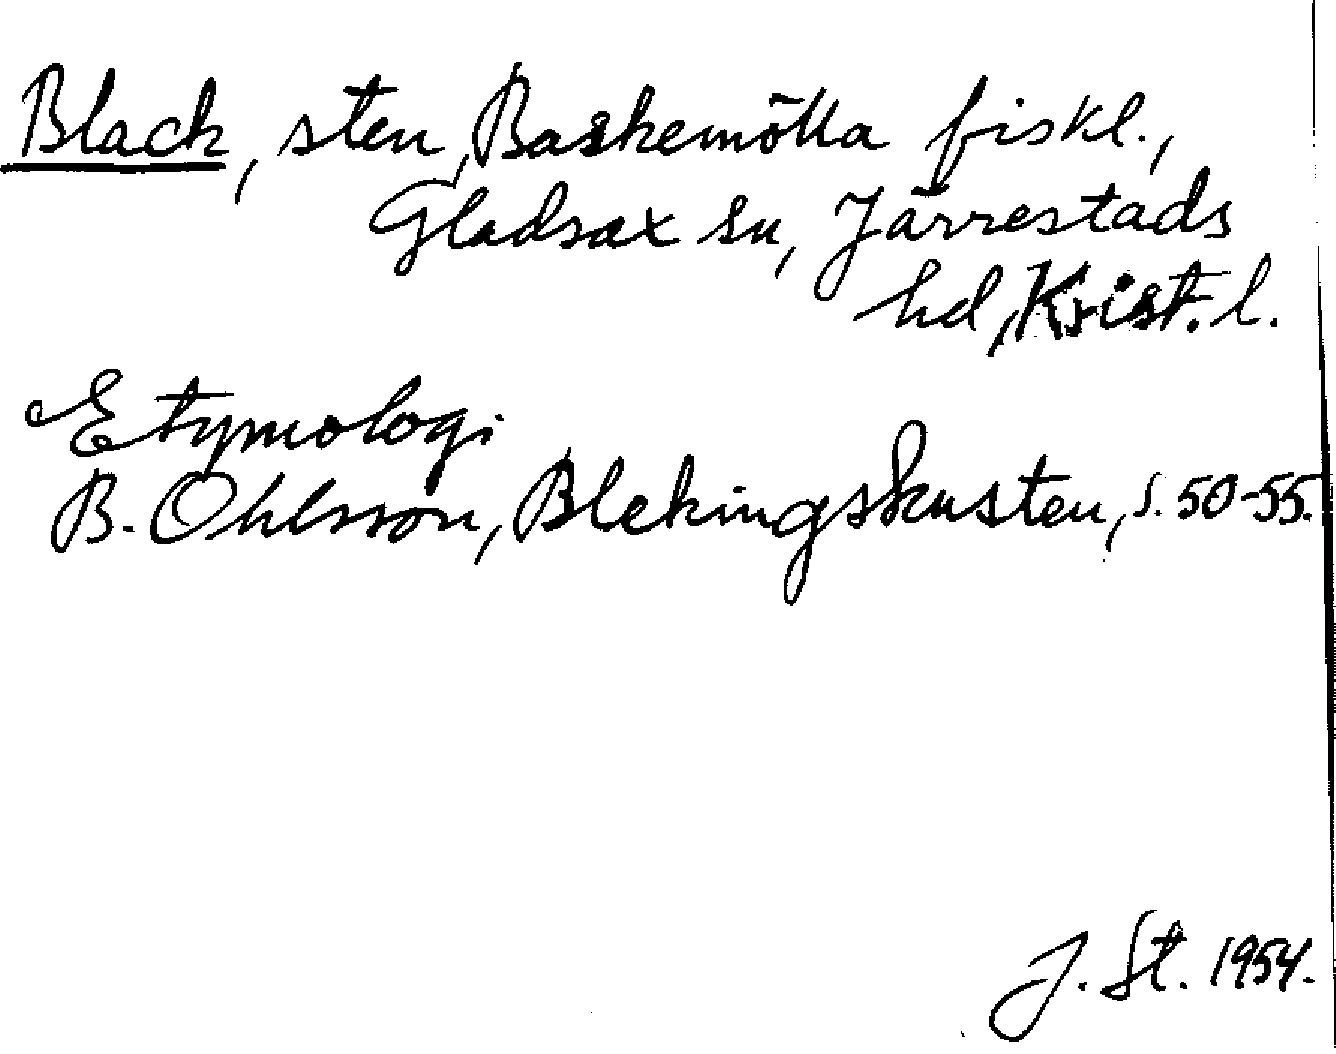 Black, sten, Baskemölla fiskl.,
Gladsax sn, Järrestads
hd, Krist. l.
Etymologi
B. Ohlsson, Blekingskusten, s. 50-55.
J. St. 1954.